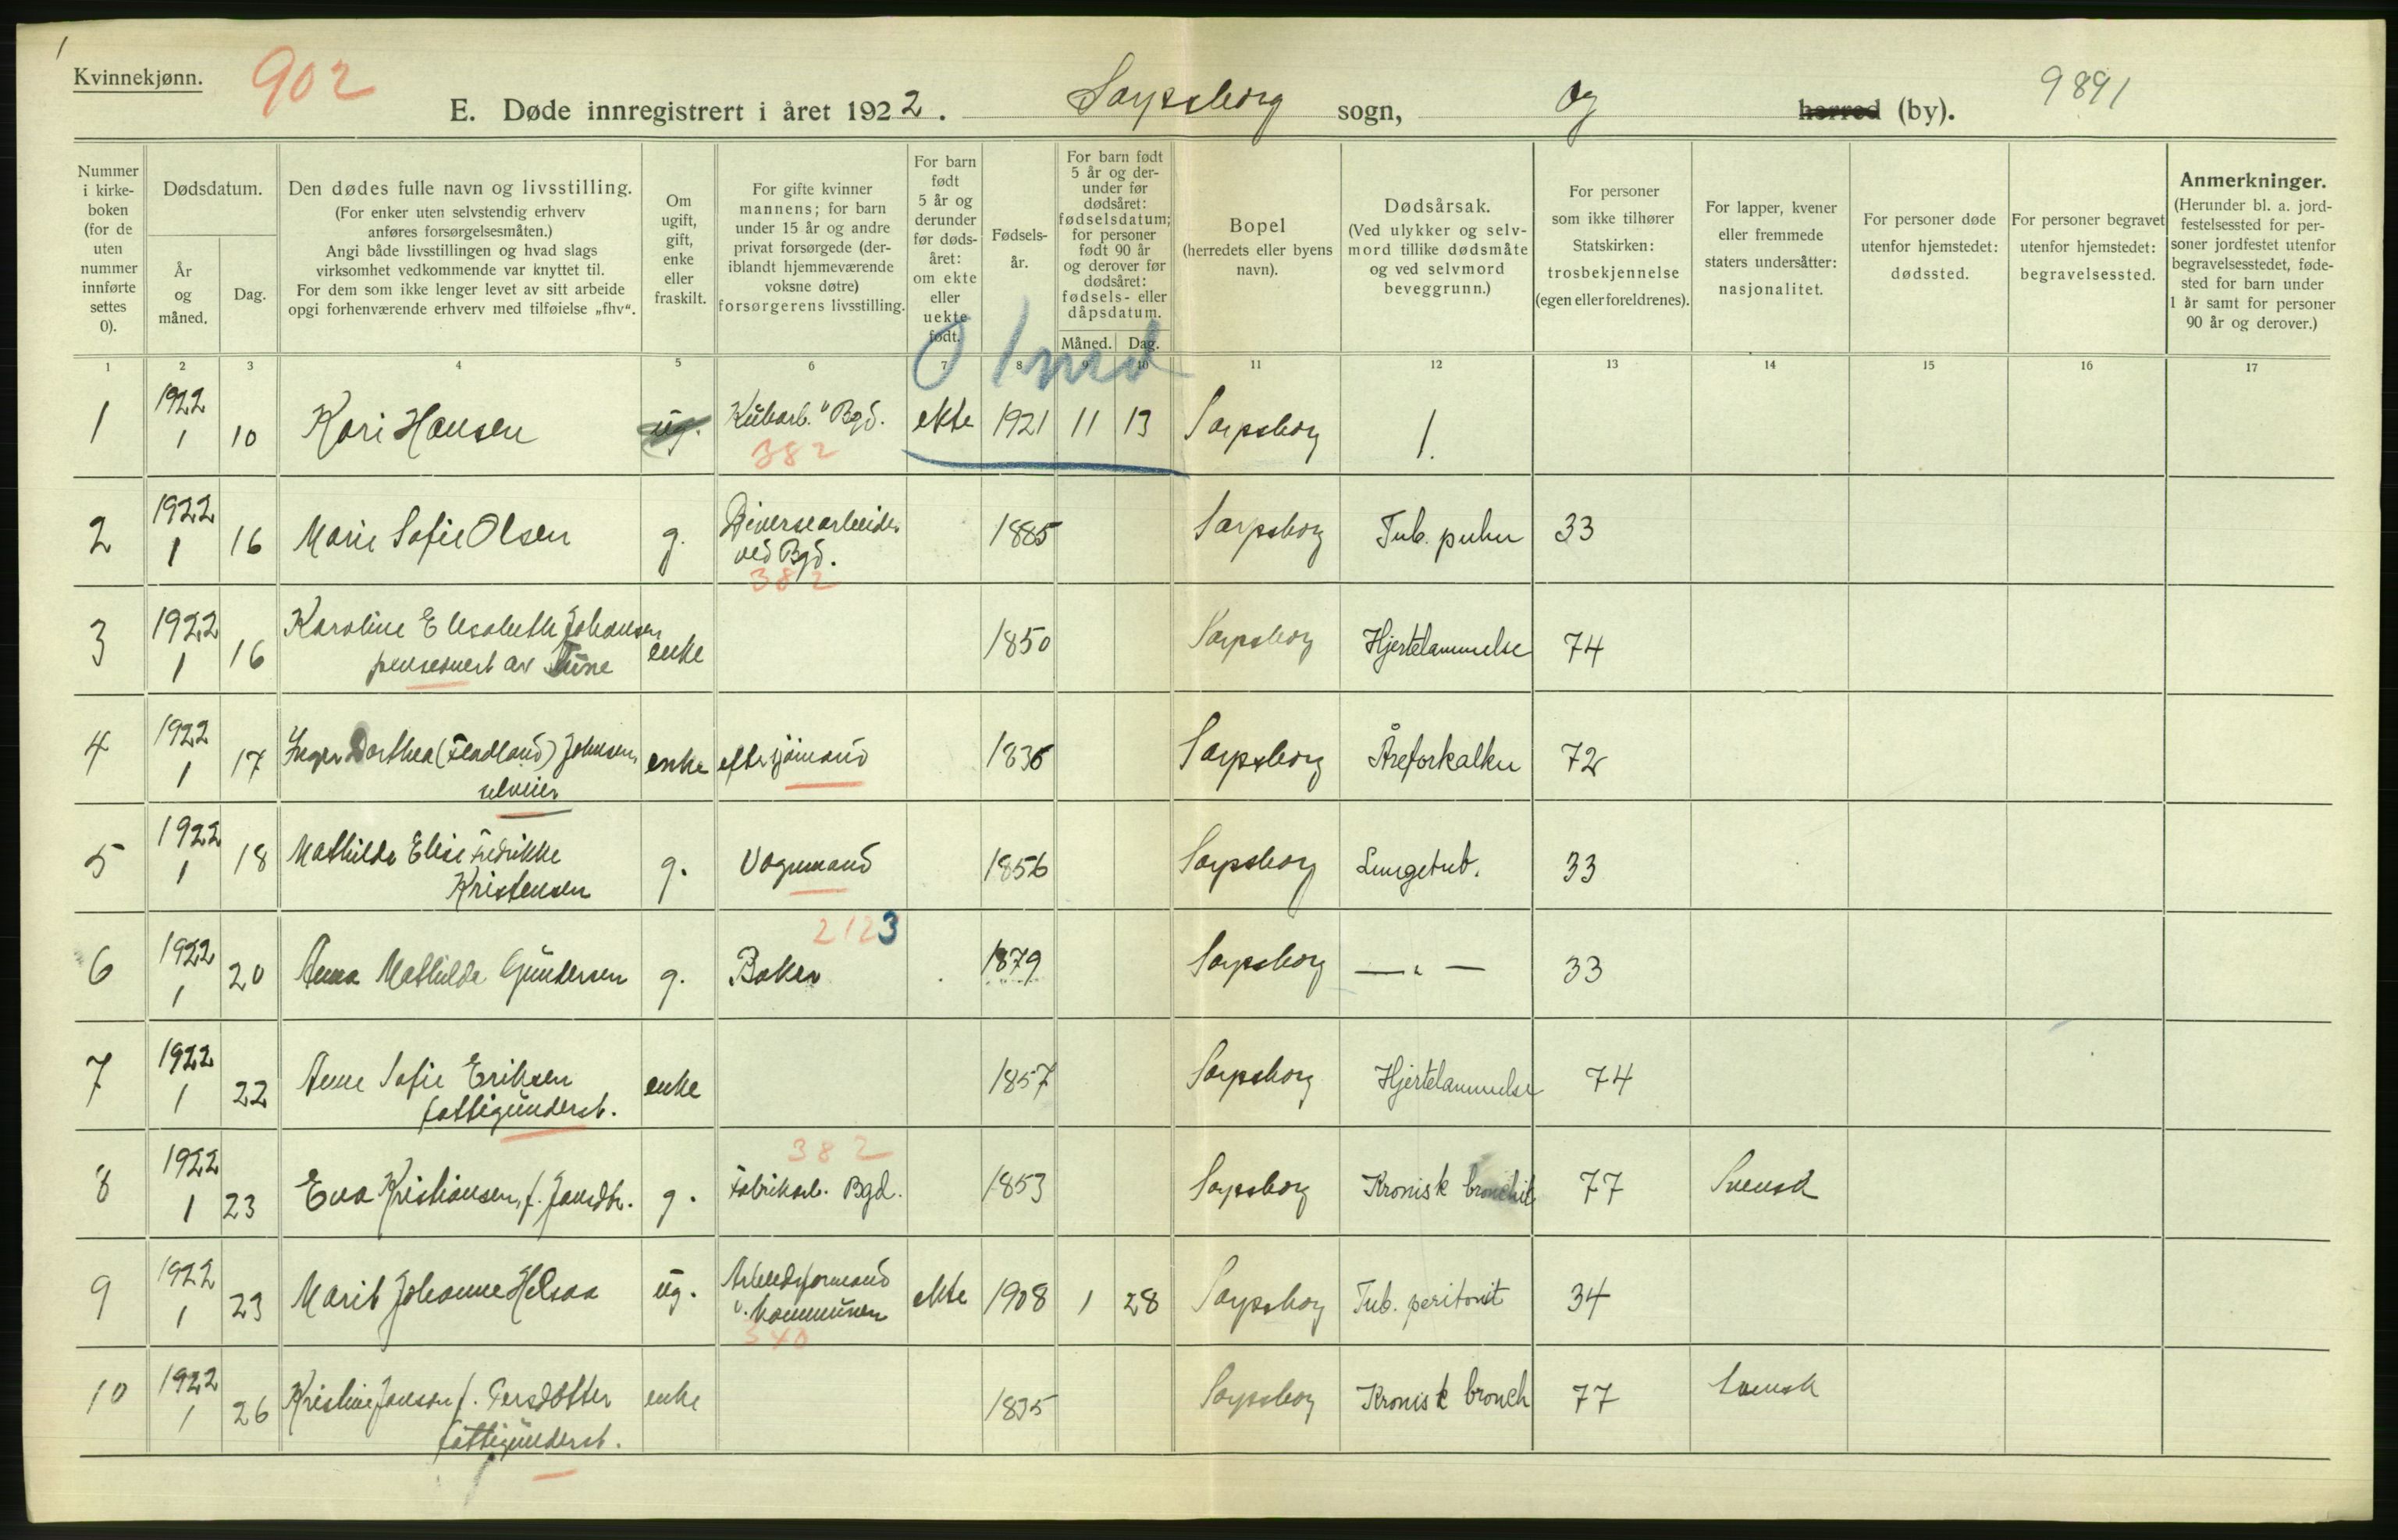 Kvinnekjønn.
902
E. Døde innregistrert i året 1922. Sarpsborg sogn, og herred (by).
9891
Nummer i kirkeboken (for de uten nummer innførte settes 0).
Dødsdatum.
År og måned.
Dag.
Den dødes fulle navn og livsstilling.
(For enker uten selvstendig erhverv anføres forsørgelsesmåten.)
Angi både livsstillingen og hvad slags virksomhet vedkommende var knyttet til.
For dem som ikke lenger levet av sitt arbeide opgi forhenværende erhverv med tilføielse „fhv“.
Om ugift, gift, enke eller fraskilt.
For gifte kvinner mannens; for barn under 15 år og andre privat forsørgede (deriblandt hjemmeværende voksne døtre) forsørgerens livsstilling.
For barn født 5 år og derunder før dødsåret: om ekte eller uekte født.
Fødselsår.
For barn født 5 år og derunder før dødsåret: fødselsdatum; for personer født 90 år og derover før dødsåret: fødsels- eller dåpsdatum.
Måned.
Dag.
Bopel
(herredets eller byens navn).
Dødsårsak.
(Ved ulykker og selvmord tillike dødsmåte og ved selvmord beveggrunn.)
For personer som ikke tilhører Statskirken: trosbekjennelse (egen eller foreldrenes).
For lapper, kvener eller fremmede staters undersåtter: nasjonalitet.
For personer døde utenfor hjemstedet: dødssted.
For personer begravet utenfor hjemstedet: begravelsessted.
Anmerkninger.
(Herunder bl. a. jordfestelsessted for personer jordfestet utenfor begravelsesstedet, fødested for barn under 1 år samt for personer 90 år og derover.)
1 2 3 4 5 6 7 8 9 10 11 12 13 14 15 16 17
0 1 md
1 1922 1 10 Kari Hansen ug. Kubarb. v Bgd. ekte 1921 11 13 Sarpsborg 1.
382
2 1922 1 16 Marie Sofie Olsen g. Diversearbeider ved Bgd. 1885 Sarpsborg Tub. pulm 33
382
3 1922 1 16 Karoline Elisabeth Johansen pensionert av Tune enke 1850 Sarpsborg Hjertelammelse 74
4 1922 1 17 Inger Dorthea (Fladland) Johnsen, selveier enke efter sjömand 1836 Sarpsborg Åreforkalkn 72
5 1922 1 18 Mathilde Elise Fredrikke Kristensen g. Vognmand 1856 Sarpsborg Lungetub. 33
2123
6 1922 1 20 Anna Mathilde Gundersen g. Baker 1879 Sarpsborg — „ — 33
7 1922 1 22 Anne Sofie Eriksen fattigunderst. enke 1857 Sarpsborg Hjertelammelse 74
382
8 1922 1 23 Eva Kristiansen, f. Jansdtr. g. Fabrikarb. Bgd. 1853 Sarpsborg Kronisk bronchit 77 Svensk
9 1922 1 23 Marit Johanne Helsaa ug. Arbeidsformand v. kommunen ekte 1908 1 28 Sarpsborg Tub. peritonit 34
340
10 1922 1 26 Kristine Jonson f. Persdotter fattigunderst. enke 1835 Sarpsborg Kronisk bronch 77 Svensk